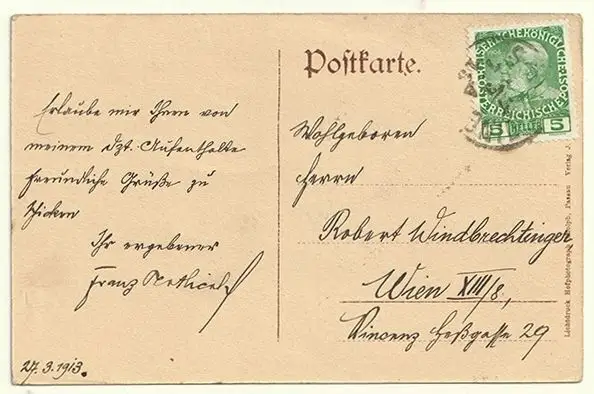 Postkarte.
KAISERLICHE KÖNIGLICHE
ÖSTERREICHISCHE POST
5 HELLER 5
Erlaube mir Ihnen von
meinem dzt. Aufenthalte
freundliche Grüße zu
schicken
Ihr ergebener
Franz
27.3.1913.
Wohlgeboren
Herrn
Robert Windbrechtinger
Wien XIII/8,
Vincenz Heßgasse 29
Lichtdruck Hofphotograph Passau Verlag J.